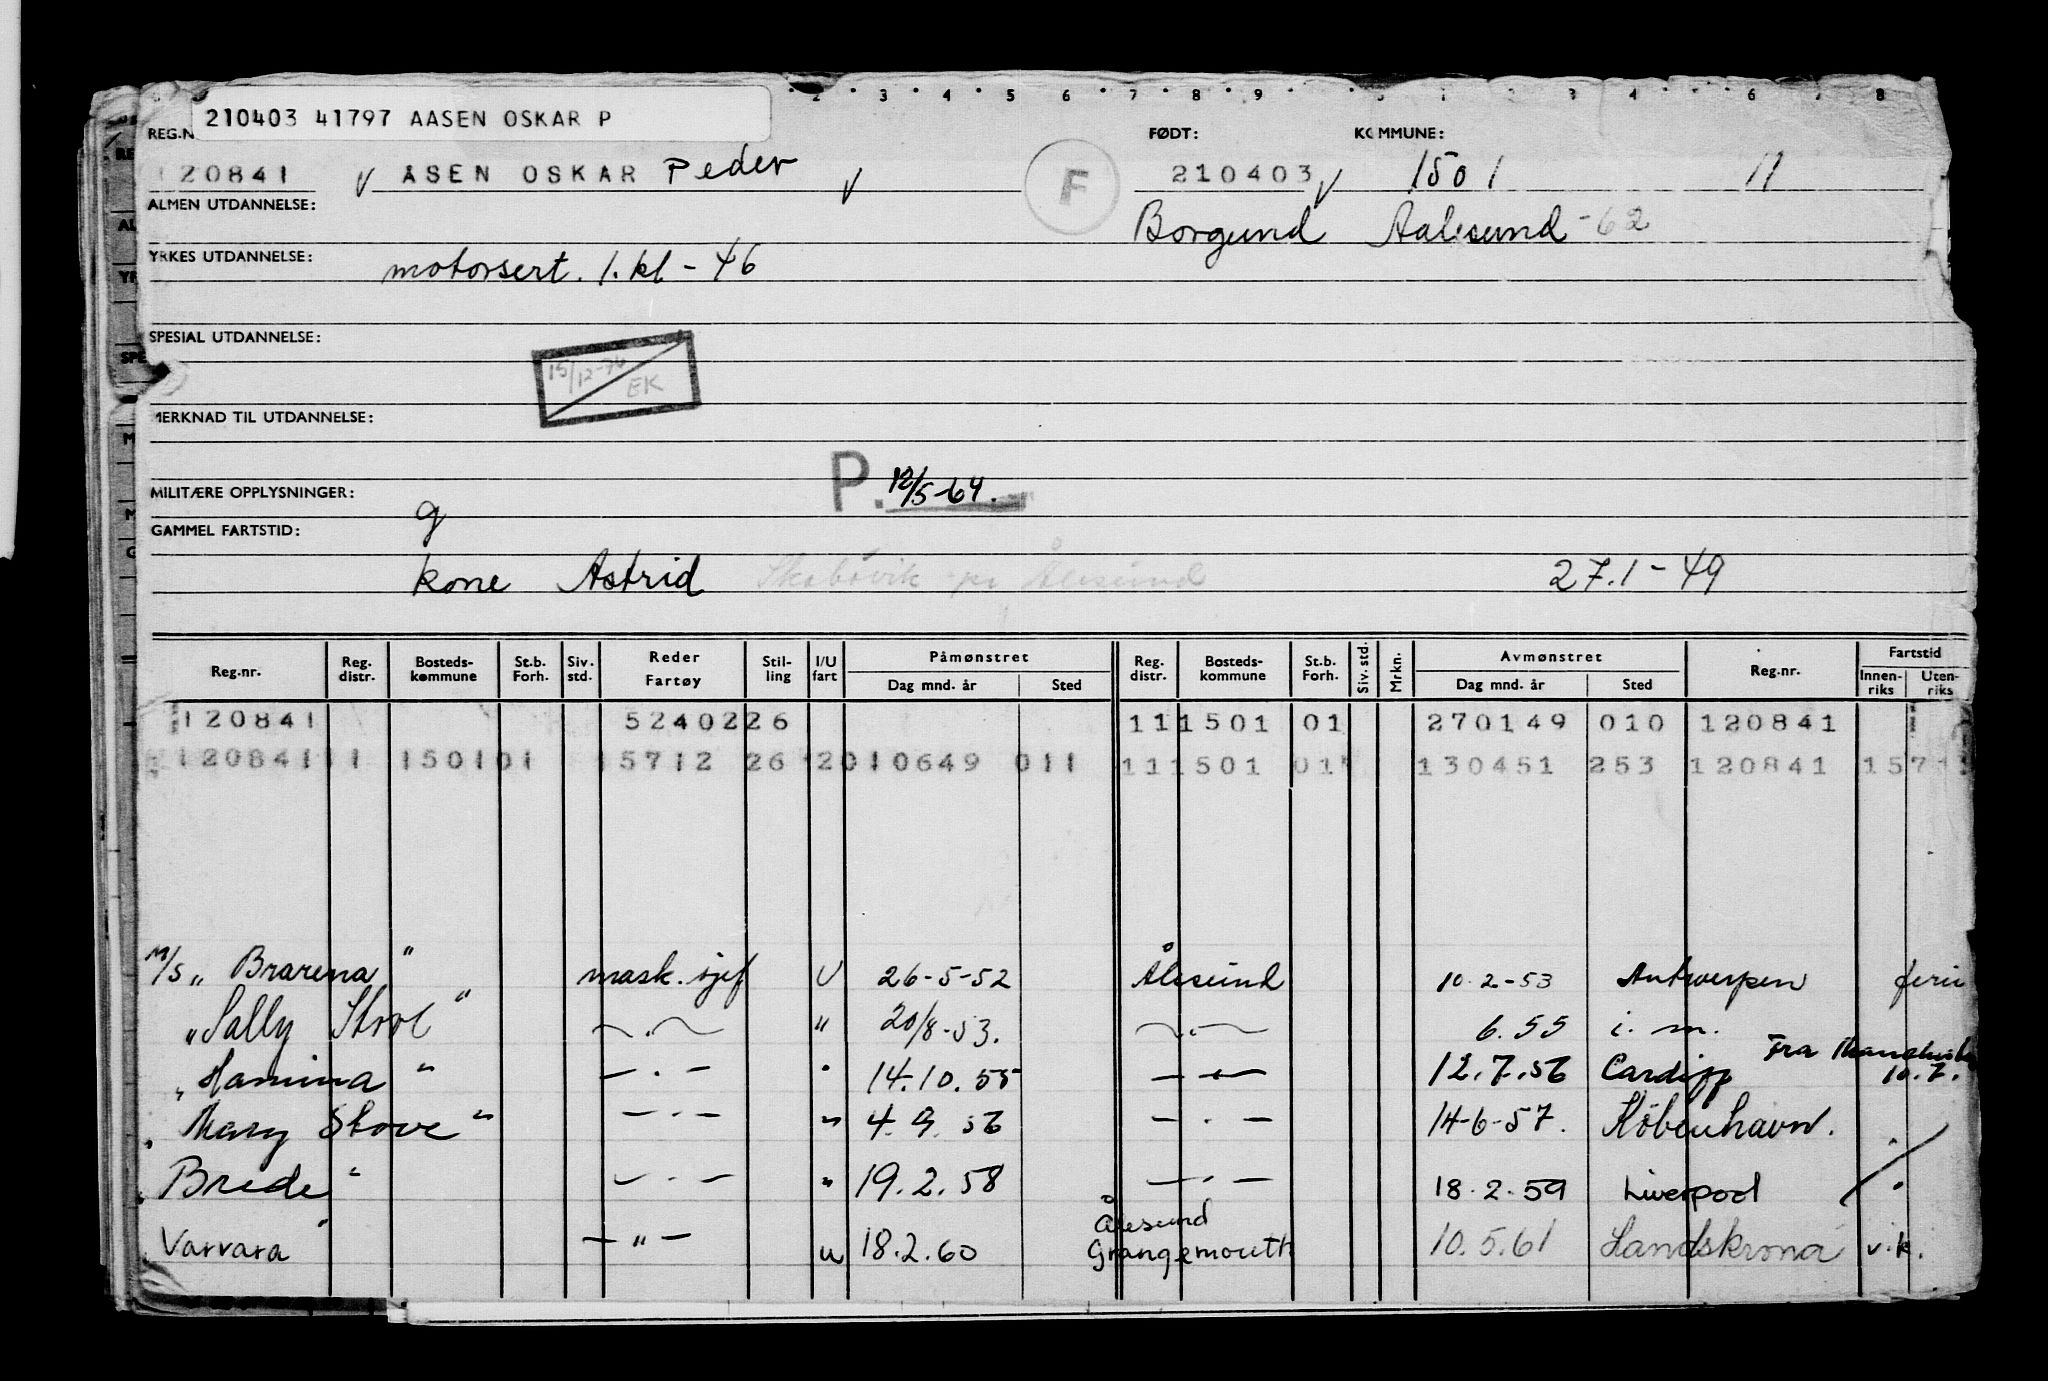 2 3 4 5 6 7 8 9 1 2 3 4 6 7 8
210403 41797 AASEN OSKAR P
REG.N FØDT: KOMMUNE:
120841 ÅSEN OSKAR Peder F 210403 1501 11
ALMEN UTDANNELSE: Borgund Aalesund -62
YRKES UTDANNELSE: motorsert. 1.kl - 46
SPESIAL UTDANNELSE:
15/12-76 EK
MERKNAD TIL UTDANNELSE:
MILITÆRE OPPLYSNINGER: P. 12/5-64.
g
GAMMEL FARTSTID:
kone Astrid Skabøvik pr Ålesund 27.1-49
Reg.nr. Reg. distr. Bosteds- kommune St.b. Forh. Siv. std. Reder Fartøy Stil- ling I/U fart Påmønstret Dag mnd. år Sted Reg. distr. Bosteds- kommune St.b. Forh. Siv. std. Mrkn. Avmønstret Dag mnd. år Sted Reg.nr. Fartstid Innen- riks Uten- riks
120841 5240226 111501 01 270149 010 120841
12084111 150101 15712 26 2010649 011 111501 01 130451 253 120841 157
M/S „ Brarena " mask.sjef U 26-5-52 Ålesund 10.2-53 Antwerpen ferie
„ Sally Stove " — . — " 20/8-53. — . — 6.55 i. m.
„ Hamina " — . — " 14.10.55 — . — 12.7.56 Cardiff Fra 10.7.
„ Mary Stove " — . — " 4.9.56 — . — 14-6-57. København.
„ Brede " — . — " 19.2.58 — . — 18.2.59 Liverpool
Varvara — " — u 18.2.60 Ålesund Grangemouth 10.5.61 Landskrona v.k.